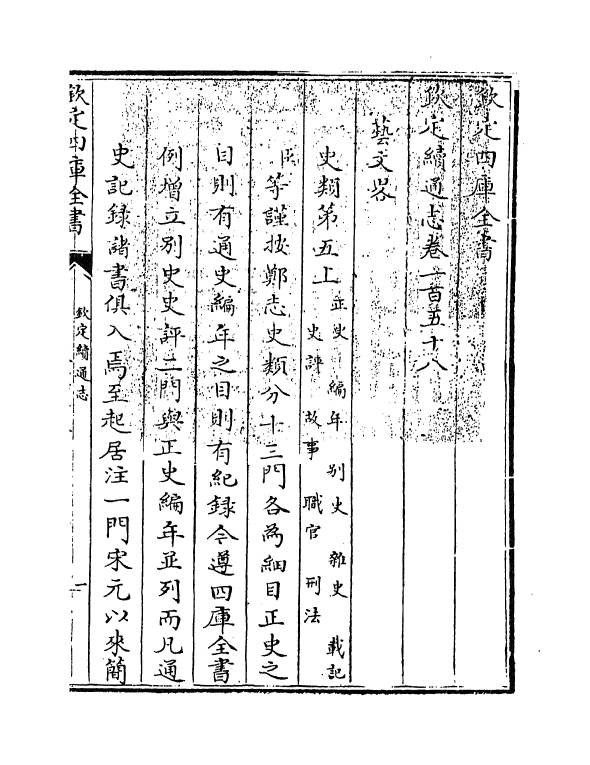 欽定四庫全書
欽定續通志卷一百五十八
藝文畧
史類第五上 正史 編年 別史 雜史 載記
史評 故事 職官 刑法
臣等謹按鄭志史類分十三門各為細目正史之
目則有通史編年之目則有紀録今遵四庫全書
例增立別史史評二門與正史編年並列而凡通
史記録諸書俱入焉至起居注一門宋元以來簡
欽定四庫全書
欽定續通志
一